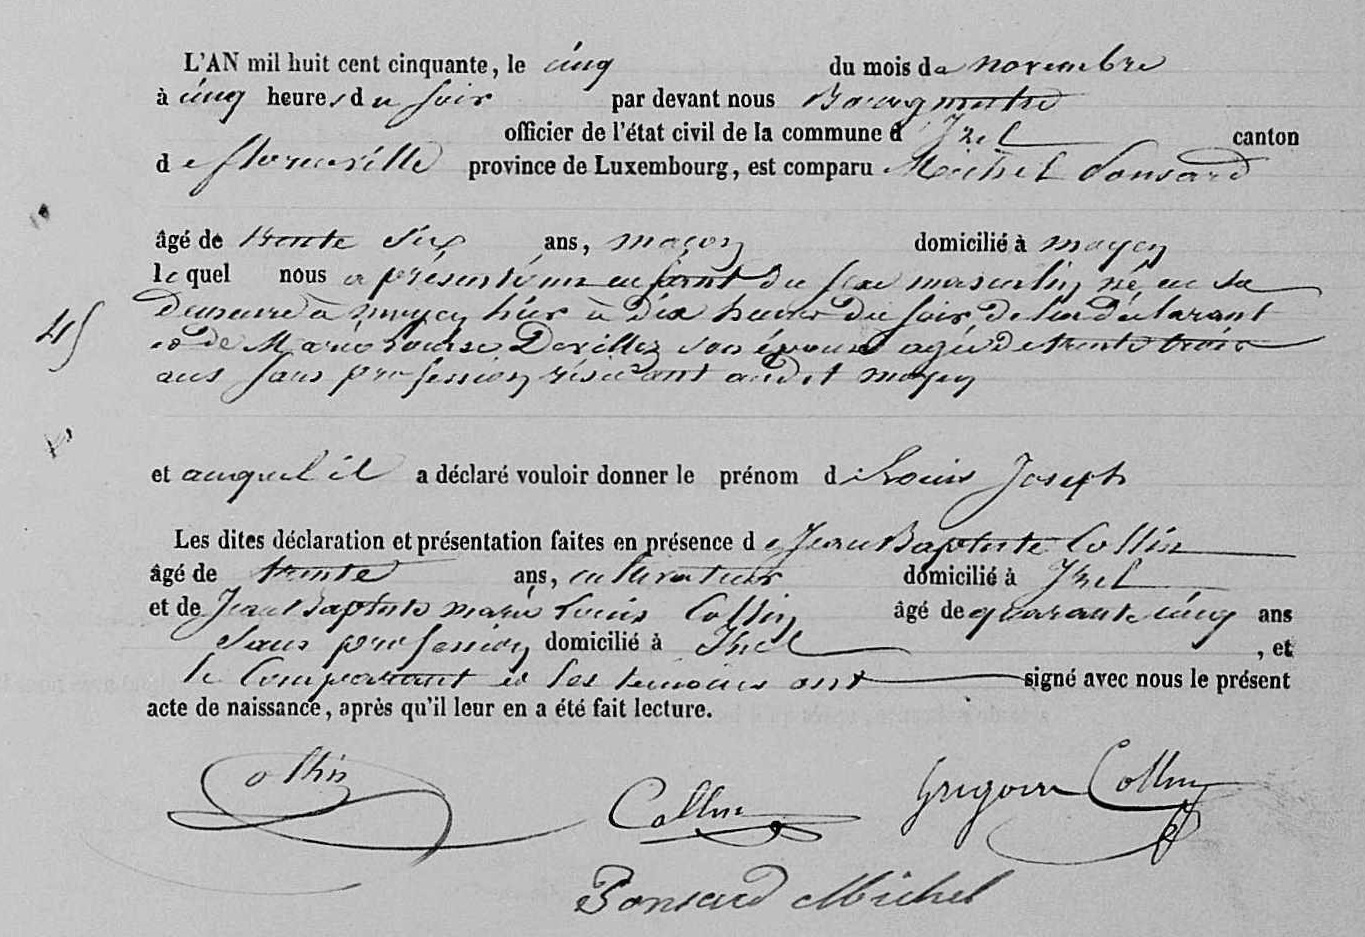 L'AN mil huit cent cinquante, le cinq du mois de novembre
à cinq heures du soir par devant nous Bourgmestre
officier de l'état civil de la commune d Izel canton
de florenville province de Luxembourg, est comparu Michel Ponsard
âgé de trente six ans, maçon domicilié à moyen
le quel nous a présenté un enfant du sexe masculin né en sa
demeure à moyen hier à dix heures du soir de lui déclarant
45
et de Marie Louise Devillez son épouse agée de trente trois
ans sans profession résidant audit moyen
et auquel il a déclaré vouloir donner le prénom de Louis Joseph
Les dites déclaration et présentation faites en présence de Jean Baptiste Collin
âgé de trente ans, cultivateur domicilié à Izel
et de Jean Baptiste marie Louis Collin âgé de quarante cinq ans
sans profession domicilié à Izel , et
le Comparant et les temoins ont signé avec nous le présent
acte de naissance, après qu'il leur en a été fait lecture.
Collin Collin Grégoire Collin
Ponsard Michel